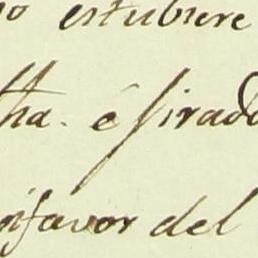 no estubiere
tha. é firado
enfavor del